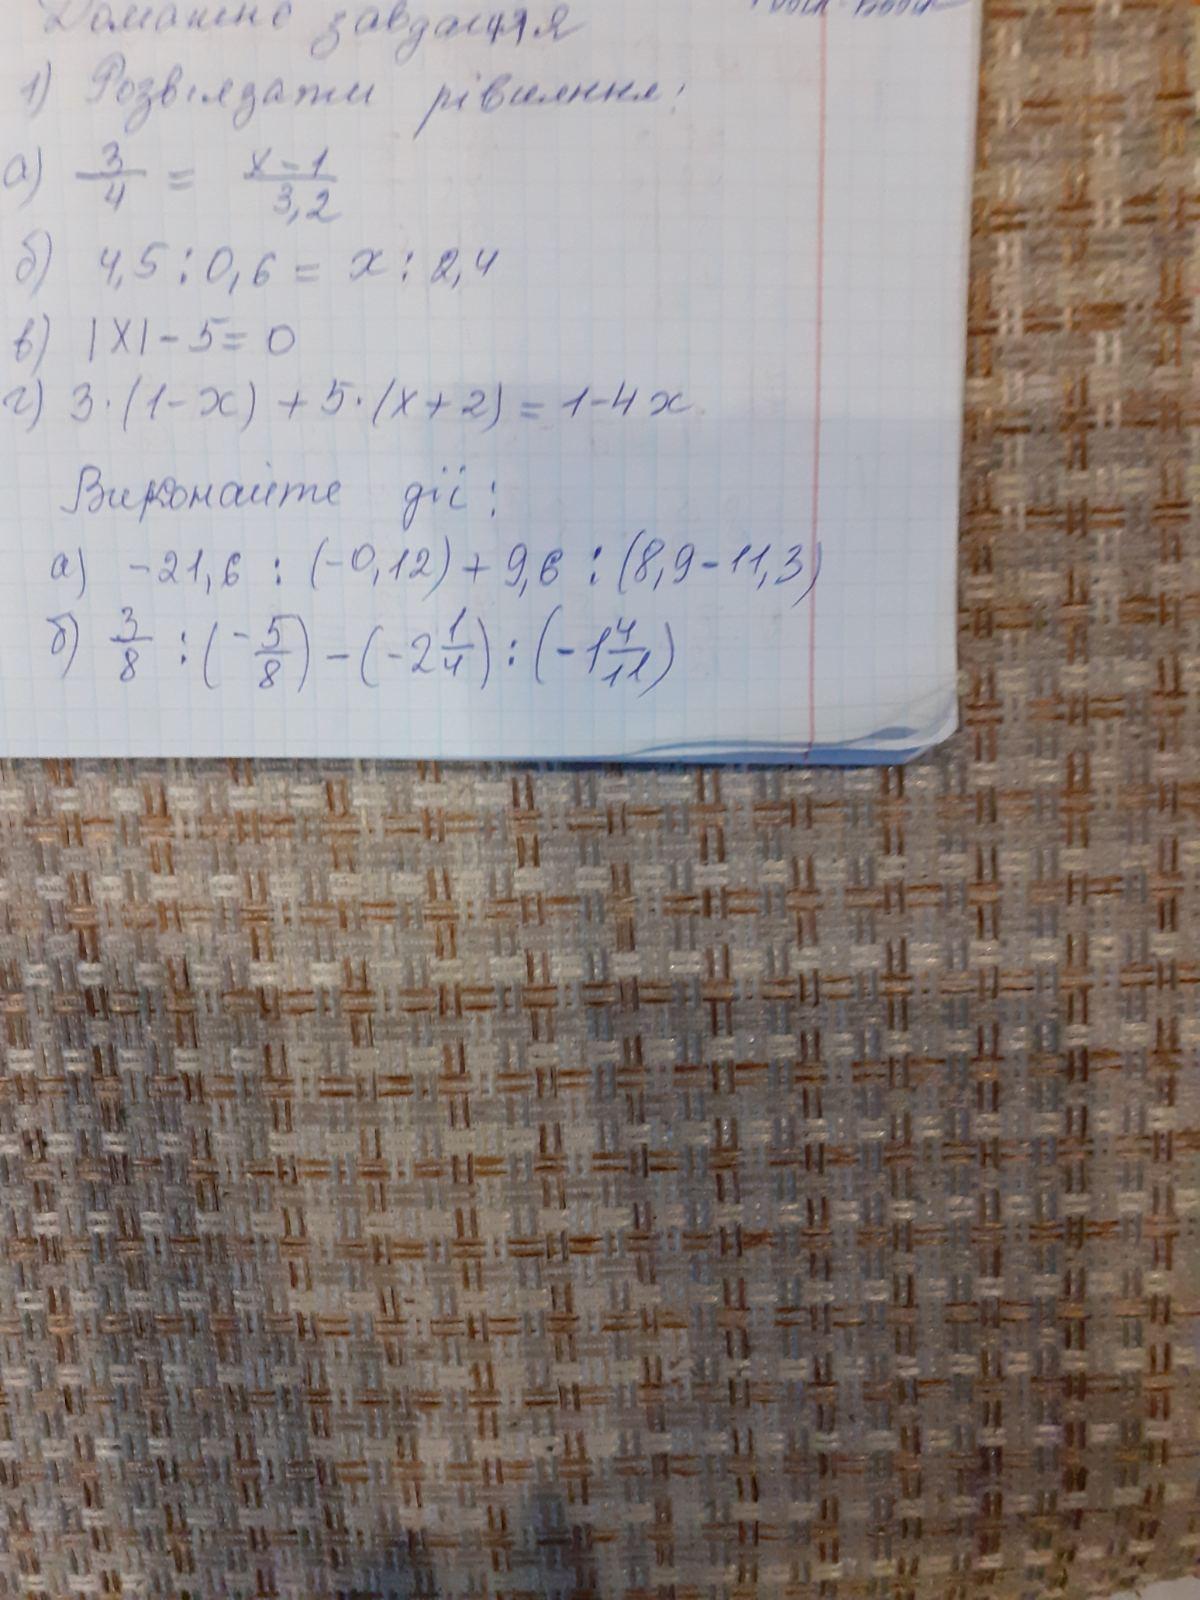 Домашнє завдання
1) Розв'язати рівняння:
а) 3/4 = x-1/3,2
б) 4,5 : 0,6 = x : 2,4
в) |x| - 5 = 0
г) 3·(1-x) + 5·(x+2) = 1-4x
Виконайте дії:
а) -21,6 : (-0,12) + 9,6 : (8,9 - 11,3)
б) 3/8 : (-5/8) - (-2 1/4) : (-1 4/11)